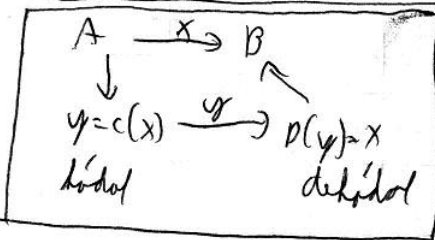 A x B
y=c(x) y D(y)=x
kódol dekódol